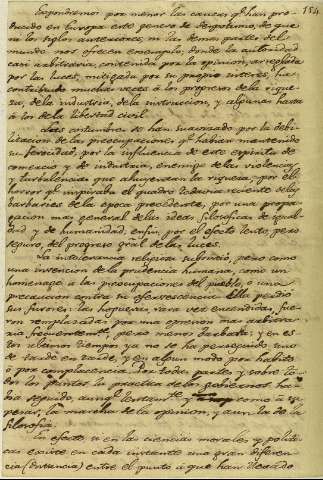 154
Expondremos por menor las causas q.e han pro-
ducido en Europa este genero de despotismo, de que
ni los siglos anteriores, ni las demas partes del
mundo nos ofrecen exemplo, donde la autoridad
casi arbitraria, contenida por la opinion, arreglada
por las luces, mitigada por su propio interes, ha
contribuido muchas veces à los progresos de la rique-
za, de la industria, de la instruccion, y algunas hasta
à los de la libertad civil.
Las costumbres se han suavizado por la debi-
litacion de las preocupaciones q.e habian mantenido
su ferocidad, por la influencia de este espiritu de
comercio y de industria, enemigo de las violencias
y turbulencias que ahuyentan la riqueza, por el
horror q.e inspiraba el quadro todavia reciente de las
barbaries de la epoca precedente, por una propa-
gacion mas general de las ideas filosoficas de igual-
dad y de humanidad, enfin, por el efecto lento, pero
seguro, del progreso gral de las luces.
La intolerancia religiosa subsistió, pero como
una invencion de la prudencia humana, como un
homenage à las preocupaciones del pueblo, ò una
precaucion contra su efervescencia. Ella perdió
su furor; las hogueras, rara vez encendidas, fue-
ron remplazadas por una opresion mas arbitra-
ria frecuentem.te, pero menos barbara; y en es-
tos ultimos tiempos ya no se ha perseguido sino
de tarde en tarde, y en algun modo por habito
ò por complacencia. Por todas partes y sobre to-
dos los puntos la practica de los gobiernos ha-
bia seguido, aunq.e lentam.te y como à su
pesar, la marcha de la opinion, y aun la de la
filosofia.
En efecto, si en las ciencias morales y politi-
cas existe en cada instante una gran diferen-
cia (distancia) entre el punto à que han llevado